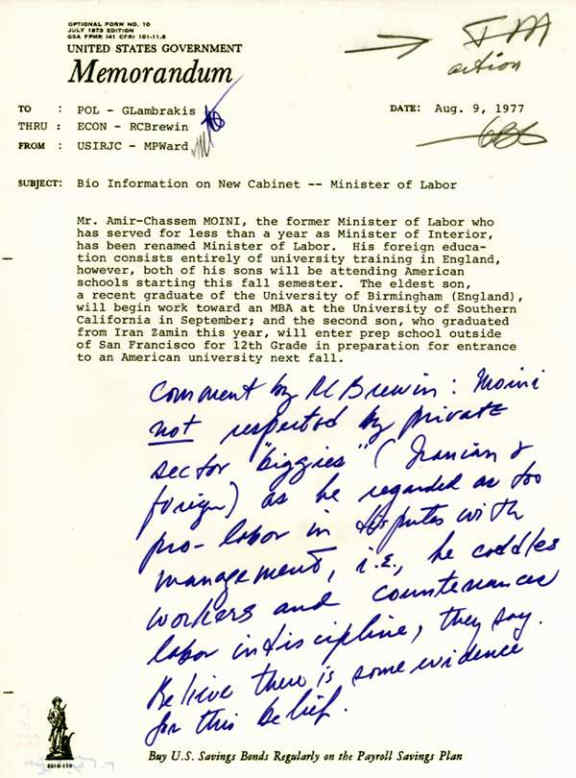 OPTIONAL FORM NO. 10
JULY 1973 EDITION
GSA FPMR (41 CFR) 101-11.6
UNITED STATES GOVERNMENT
Memorandum
→ JM
action
TO : POL - GLambrakis
DATE: Aug. 9, 1977
THRU : ECON - RCBrewin
FROM : USIRJC - MPWard
SUBJECT: Bio Information on New Cabinet -- Minister of Labor
Mr. Amir-Chassem MOINI, the former Minister of Labor who
has served for less than a year as Minister of Interior,
has been renamed Minister of Labor. His foreign educa-
tion consists entirely of university training in England,
however, both of his sons will be attending American
schools starting this fall semester. The eldest son,
a recent graduate of the University of Birmingham (England),
will begin work toward an MBA at the University of Southern
California in September; and the second son, who graduated
from Iran Zamin this year, will enter prep school outside
of San Francisco for 12th Grade in preparation for entrance
to an American university next fall.
Comment by RCBrewin: Moini
not respected by private
sector "biggies" (Iranian &
foreign) as he regarded as too
pro-labor in disputes with
management, i.e., he coddles
workers and countenances
labor indiscipline, they say.
Believe there is some evidence
for this belief.
Buy U.S. Savings Bonds Regularly on the Payroll Savings Plan
5010-110